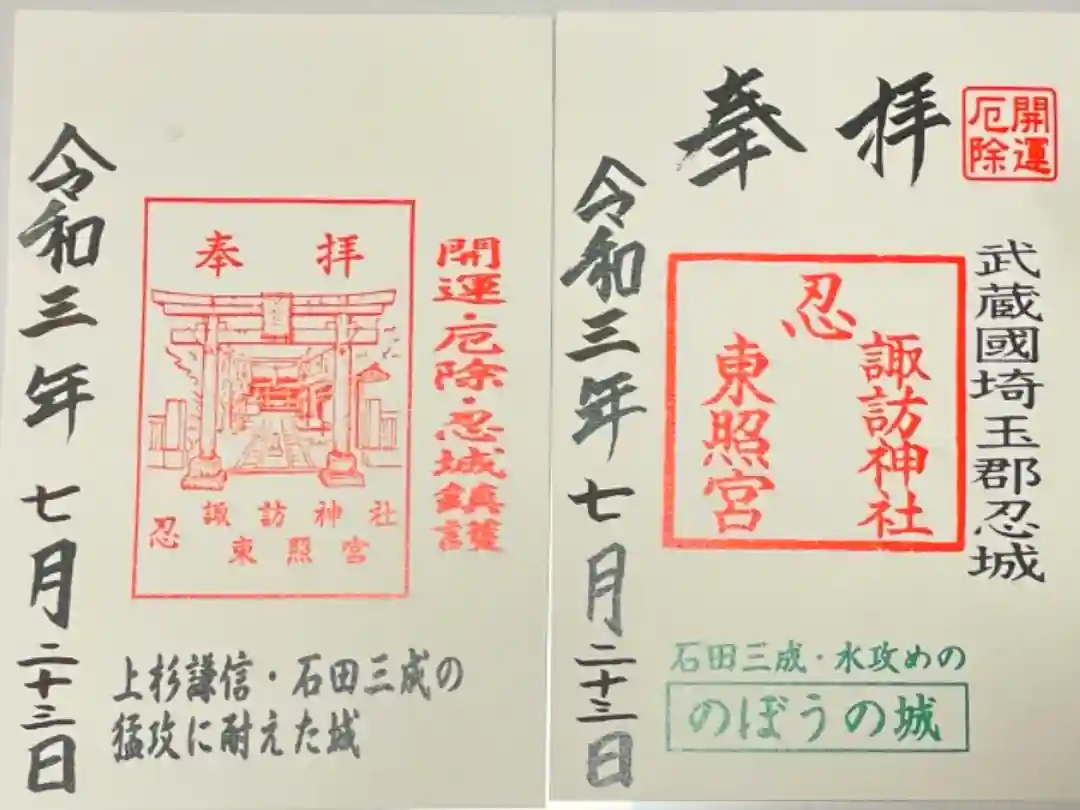 開運・厄除・忍城鎮護
奉拝
忍
諏訪神社
東照宮
令和三年七月二十三日
上杉謙信・石田三成の
猛攻に耐えた城
開運
厄除
奉拝
武蔵國埼玉郡忍城
忍
諏訪神社
東照宮
令和三年七月二十三日
石田三成・水攻めの
のぼうの城